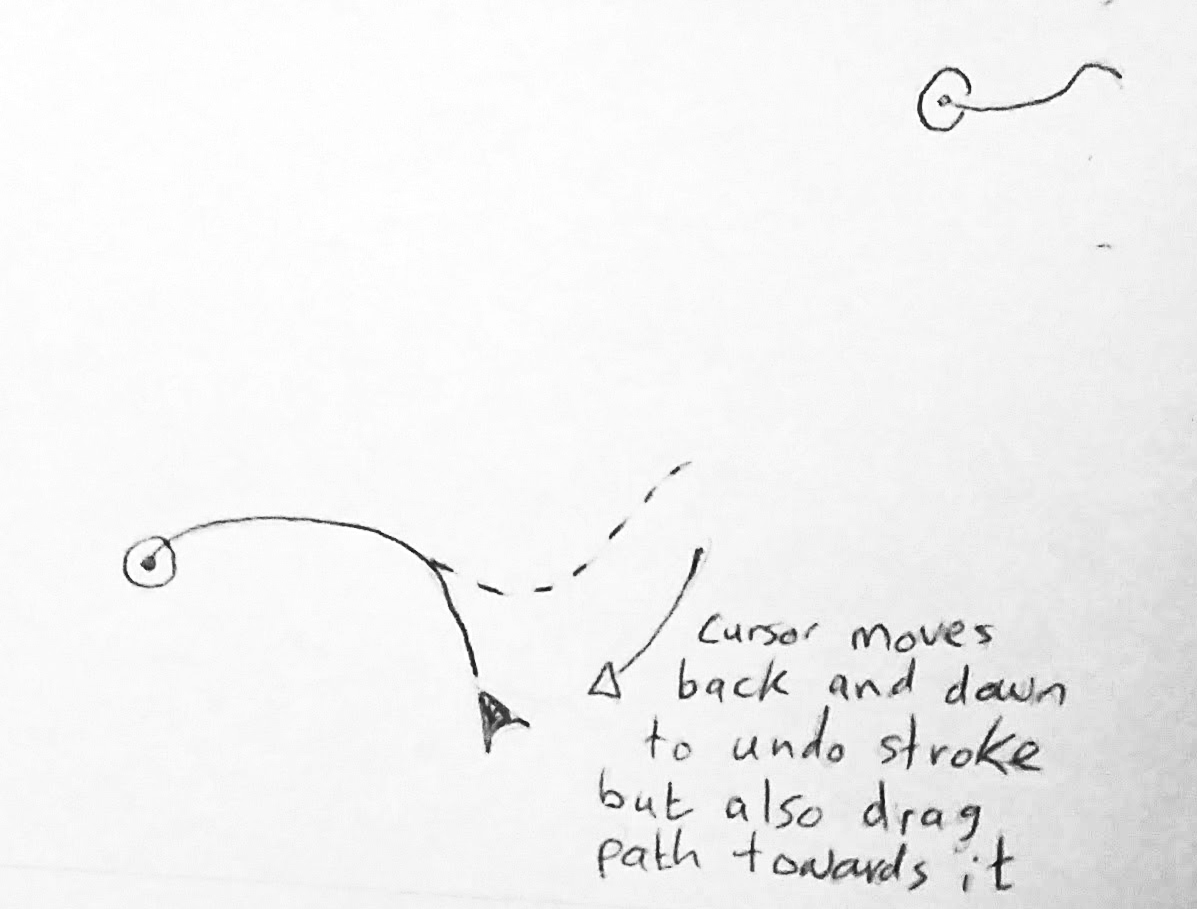 Cursor moves
back and down
to undo stroke
but also drag
path towards it